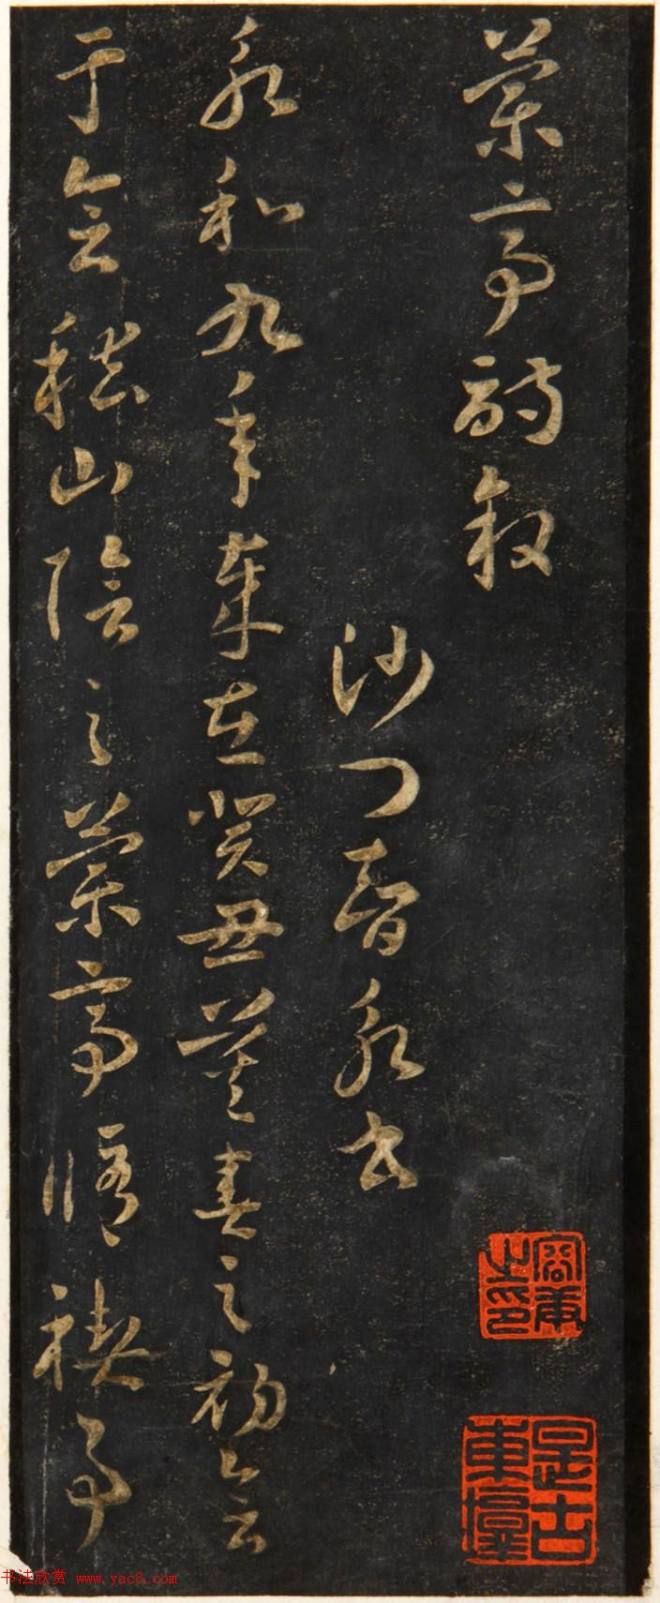 蘭亭詩叙
沙門智永書
永和九年歲在癸丑暮春之初會
于會稽山陰之蘭亭脩禊事
之印
是古
东
书法欣赏 www.yac8.com